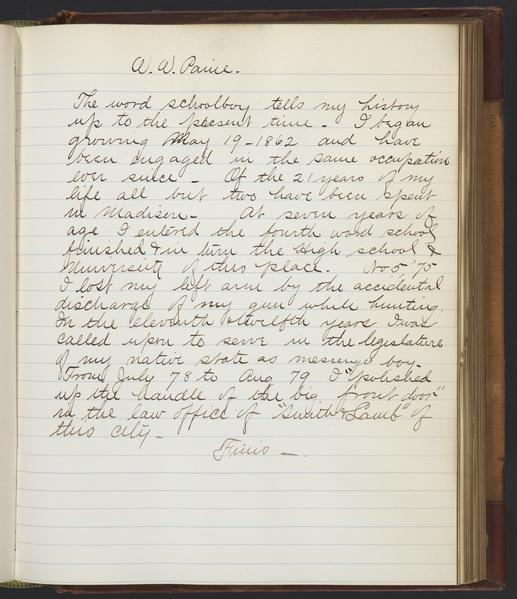 W. W. Paine.
The word schoolboy tells my history
up to the present time - I began
growing May 19 - 1862 and have
been engaged in the same occupation
ever since - Of the 21 years of my
life all but two have been spent
in Madison - At seven years of
age I entered the fourth ward school
finished & in turn the High school &
University of this place. Nov 5 '75
I lost my left arm by the accidental
discharge of my gun while hunting.
In the eleventh & twelfth years I was
called upon to serve in the legislature
of my native state as messenge boy -
From July 78 to Aug 79 I "polished
up the handle of the big front door"
in the law office of "Smith & Lamb" of
this city -
Finis -